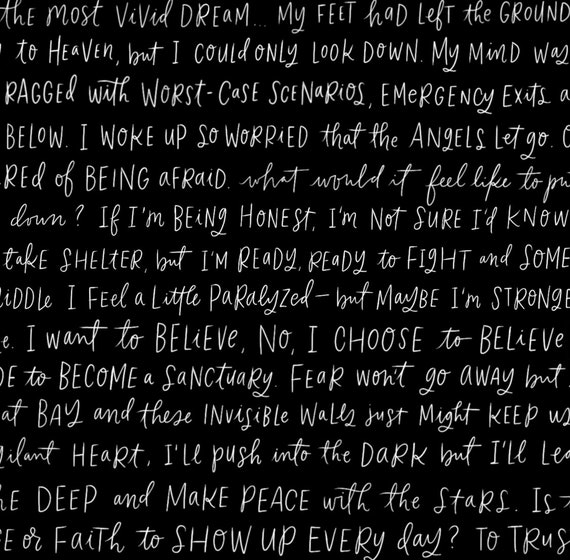 the MOST ViViD DREAM... My FEET haD LEft the GROUND
to HEAVEN, but I COULD ONLY LOOK DOWN. My MinD was
RAGGED with WORST-CASE SCENARIOS, EMERGENCY EXits a
BELOW. I WOKE UP SO WORRIED that the ANGELS Let go. O
RED of BEING aFRAID. what would it feel like to pu
down? If I'm BEiNG HONEST, I'm Not SURE I'd KNOW
take SHELTER, but I'M READY, READY to FIGHT and SOME
iDDLe I FEEL a Little PaRalyzed – but MayBE I'm STRONGE
e. I want to BELiEVE, NO, I CHOOSE to BELiEVE
DE to BECOME a SaNCtuaRy. FEaR won't go aWAY but
at BAY and these INVisiBLE WaLLs just Might KEEP us
gilant HEaRt, I'LL push into the DaRK but I'll Lea
HE DEEP and MaKE PEACE with the StaRS. Is
FE or FaitH to SHOW UP EVERy day? To TRUS